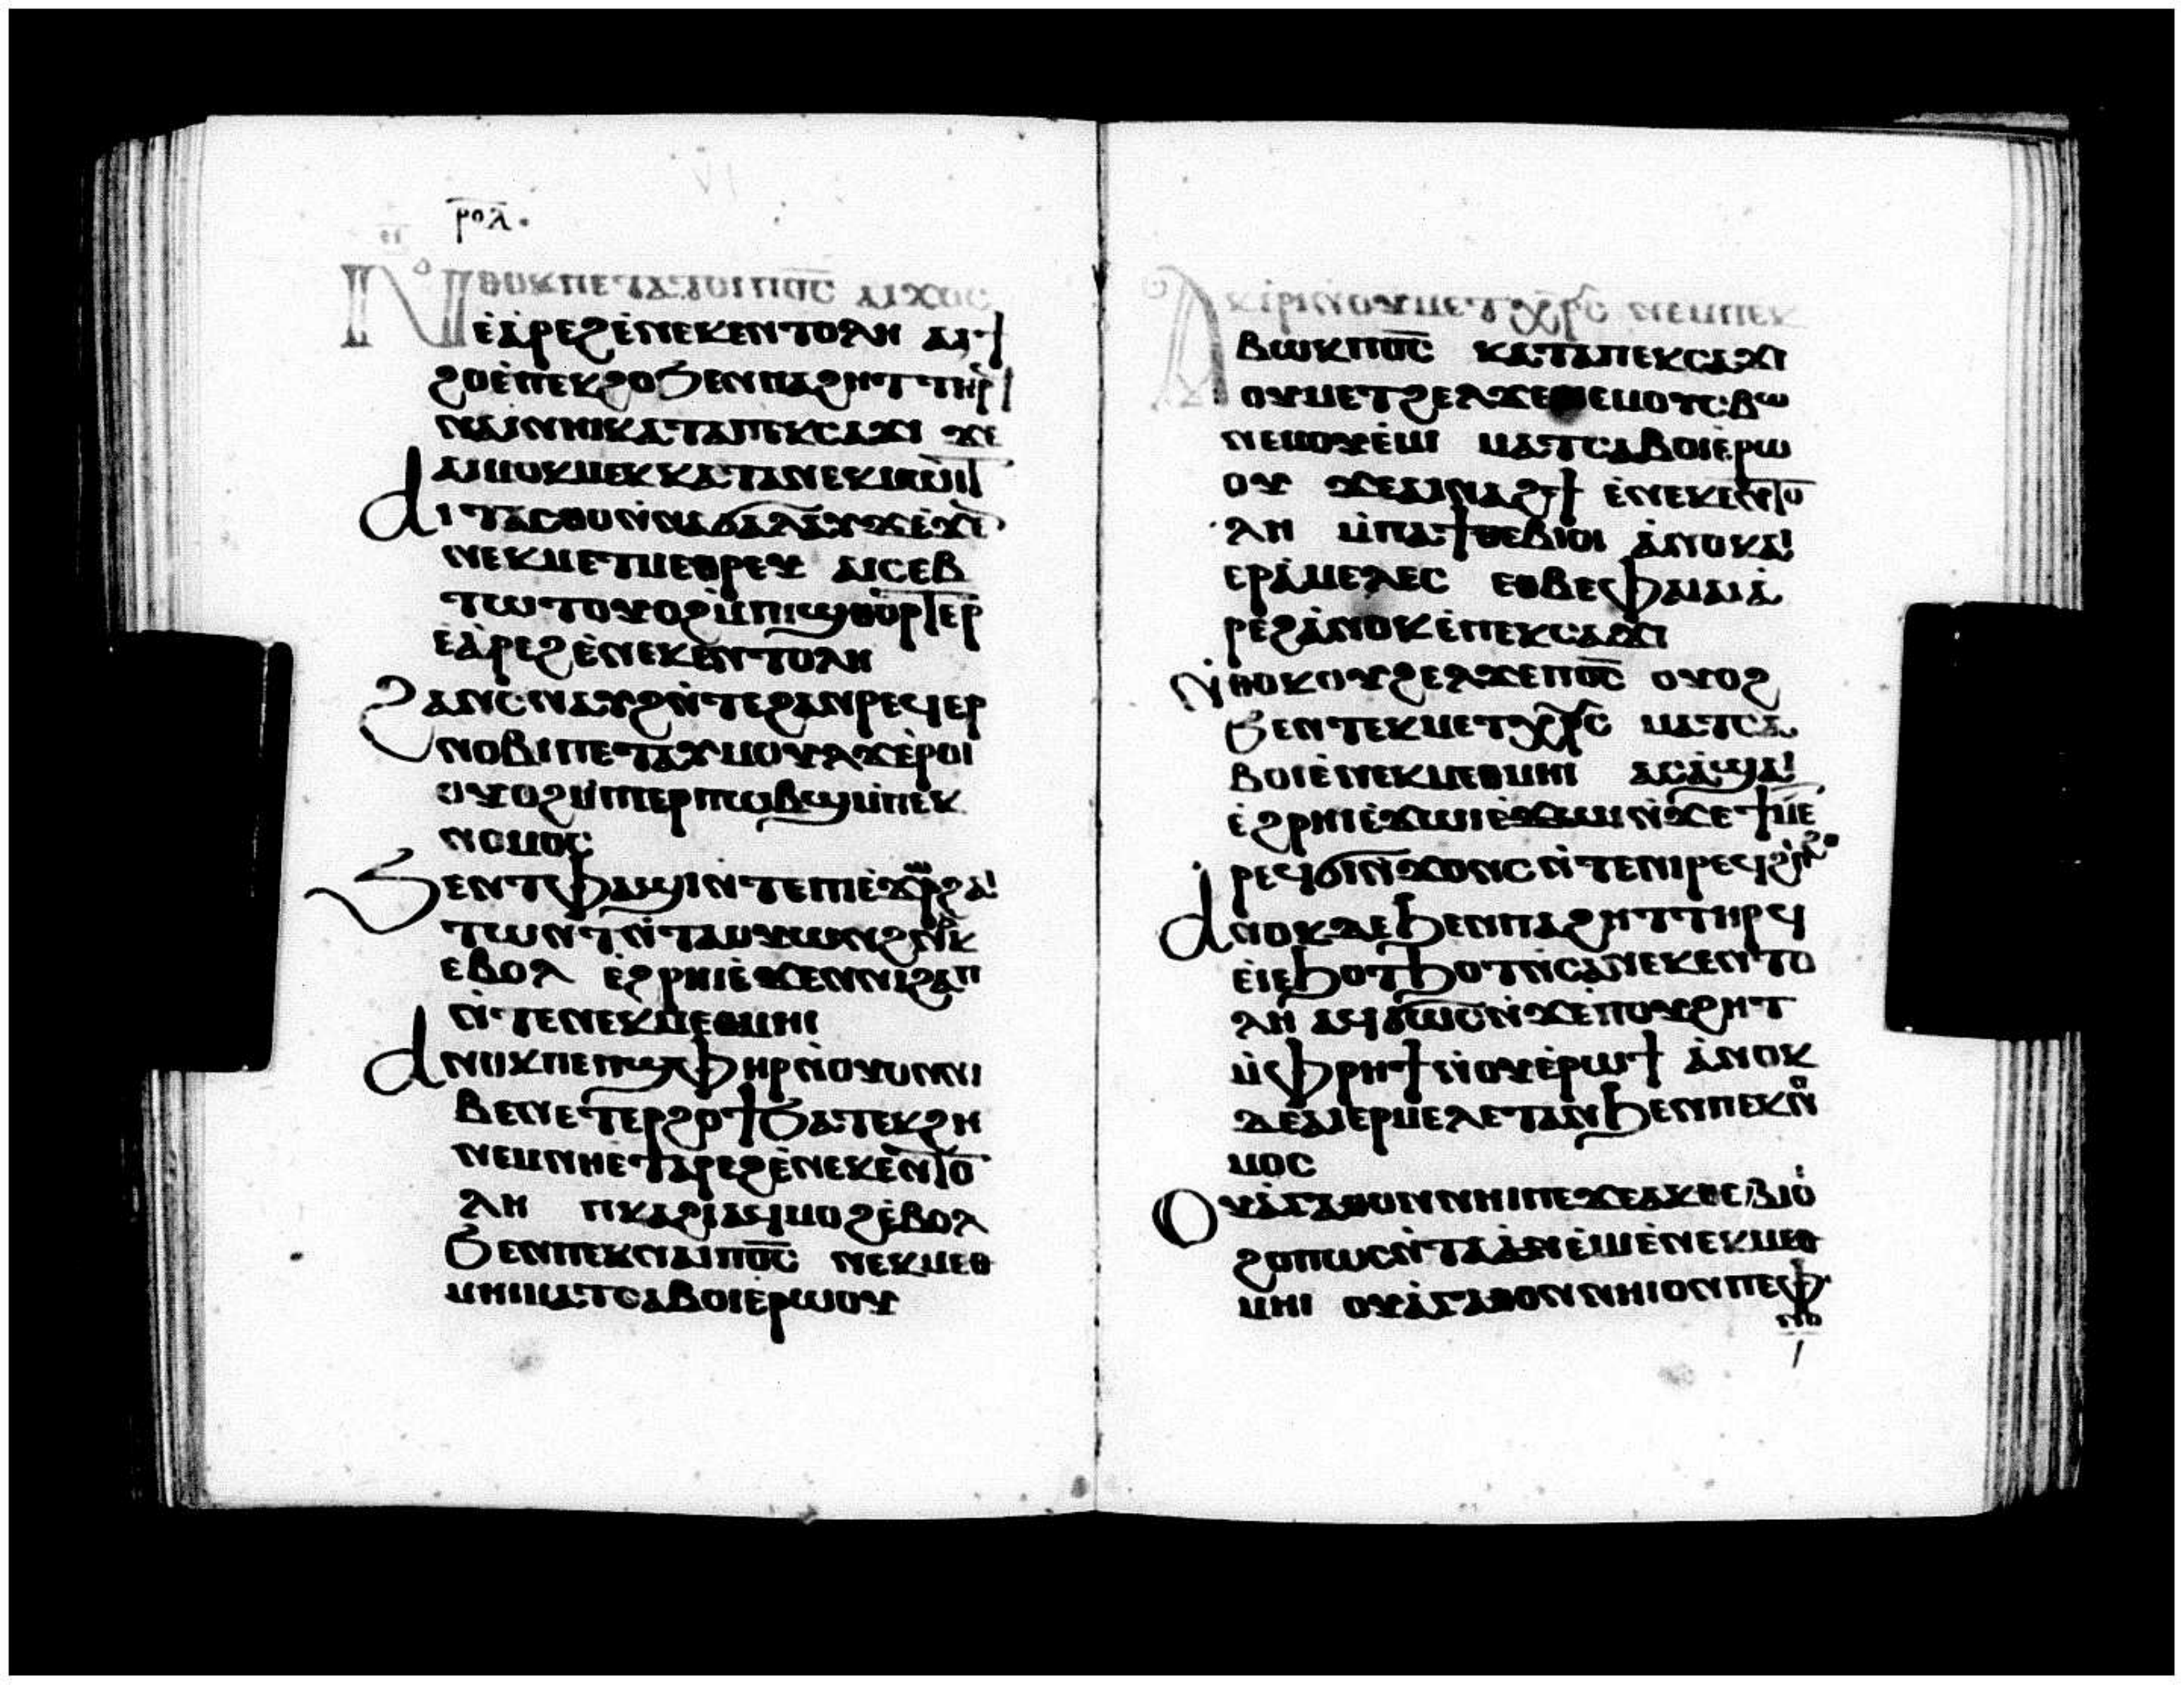 ⲣⲟⲗ
Ⲛⲑⲟⲕ ⲡⲉ ⲧⲁⲧⲟⲓ ⲡⲟ̅ⲥ̅ ⲁⲓϫⲟⲥ
ⲉ̀ⲁ̀ⲣⲉϩ ⲉ̀ⲛⲉⲕⲉⲛⲧⲟⲗⲏ ⲁⲓϯ
ϩⲟ ⲉ̀ⲡⲉⲕϩⲟ ϧⲉⲛ ⲡⲁϩⲏⲧ ⲧⲏⲣ
ⲛⲁⲓ ⲛⲏⲓ ⲕⲁⲧⲁ ⲡⲉⲕⲥⲁϫⲓ ϫⲉ
ⲁⲓⲙⲟⲕⲙⲉⲕ ⲕⲁⲧⲁ ⲛⲉⲕⲙⲱⲓⲧ
ⲁⲓⲧⲁⲥⲑⲟ ⲛ̀ⲛⲁϭⲁⲗⲁⲩϫ ⲉ̀ϫⲉⲛ
ⲛⲉⲕⲙⲉⲧⲙⲉⲑⲣⲉⲩ ⲁⲓⲥⲉⲃ
ⲧⲱⲧ ⲟⲩⲟϩ ⲙ̀ⲡⲓϣⲑⲟⲣⲧⲉⲣ
ⲉ̀ⲁ̀ⲣⲉϩ ⲉ̀ⲛⲉⲕⲉⲛⲧⲟⲗⲏ
ϩⲁⲛⲥⲛⲁⲩϩ ⲛ̀ⲧⲉ ϩⲁⲛⲣⲉϥⲉⲣ
ⲛⲟⲃⲓ ⲡⲉⲧⲁⲩⲙⲟⲩⲗϫ ⲉ̀ⲣⲟⲓ
ⲟⲩⲟϩ ⲙ̀ⲡⲓⲉⲣⲡⲱⲃϣ ⲙ̀ⲡⲉⲕ
ⲛⲟⲙⲟⲥ
ϧⲉⲛ ⲧⲫⲁϣⲓ ⲛ̀ⲧⲉ ⲡⲓⲉ̀ϫⲱⲣϩ ⲁⲓ
ⲧⲱⲛⲧ ⲛ̀ⲧⲁⲟⲩⲱⲛϩ ⲛⲁⲕ
ⲉⲃⲟⲗ ⲉ̀ϩⲣⲏⲓ ⲉ̀ϫⲉⲛ ⲛⲓϩⲁⲡ
ⲛ̀ⲧⲉ ⲛⲉⲕⲙⲉⲑⲙⲏⲓ
ⲁⲛⲟⲕ ⲡⲉ ⲡϣⲫⲏⲣ ⲛ̀ⲟⲩⲟⲛ ⲛⲓ
ⲃⲉⲛ ⲉⲧⲉⲣϩⲟϯ ϧⲁⲧⲉⲕϩⲏ
ⲛⲉⲙ ⲛⲏⲉⲧⲁⲣⲉϩ ⲉ̀ⲛⲉⲕⲉⲛⲧⲟ
ⲗⲏ ⲡⲕⲁϩⲓ ⲁϥⲙⲟϩ ⲉ̀ⲃⲟⲗ
ϧⲉⲛ ⲡⲉⲕⲛⲁⲓ ⲡⲟ̅ⲥ̅ ⲛⲉⲕⲙⲉⲑ
ⲙⲏⲓ ⲙⲁⲧⲥⲁⲃⲟⲓ ⲉ̀ⲣⲱⲟⲩ
Ⲁⲕⲓⲣⲓ ⲛⲟⲩⲙⲉⲧⲭⲣⲥ ⲛⲉⲙ ⲡⲉⲕ
ⲃⲱⲕ ⲡⲟ̅ⲥ̅ ⲕⲁⲧⲁ ⲡⲉⲕⲥⲁϫⲓ
ⲟⲩⲙⲉⲧϩⲉⲗϫⲉ ⲛⲉⲙ ⲟⲩⲥⲃⲱ
ⲛⲉⲙ ⲟⲩⲉ̀ⲙⲓ ⲙⲁⲧⲥⲁⲃⲟⲓ ⲉ̀ⲣⲱ
ⲟⲩ ϫⲉ ⲁⲓⲛⲁϩϯ ⲉ̀ⲛⲉⲕⲉⲛⲧⲟ
ⲗⲏ ⲙ̀ⲡⲁϯⲑⲉⲃⲓⲟⲓ ⲁ̀ⲛⲟⲕ ⲁⲓ
ⲉⲣⲁ̀ⲙⲉⲗⲉⲥ ⲉⲑⲃⲉ ⲫⲁⲓ ⲁⲓⲁ̀
ⲣⲉϩ ⲁ̀ⲛⲟⲕ ⲉ̀ⲡⲉⲕⲥⲁϫⲓ
ⲛ̀ⲑⲟⲕ ⲟⲩϩⲉⲗϫⲉ ⲡⲟ̅ⲥ̅ ⲟⲩⲟϩ
ϧⲉⲛ ⲧⲉⲕⲙⲉⲧⲭⲣⲥ ⲙⲁⲧⲥⲁ
ⲃⲟⲓ ⲉ̀ⲛⲉⲕⲙⲉⲑⲙⲏⲓ ⲁⲥⲁ̀ϣⲁⲓ
ⲉ̀ϩⲣⲏⲓ ⲉ̀ϫⲱⲓ ⲉ̀ϫⲱⲓ ⲛ̀ϫⲉ ϯⲙⲉ
ⲣⲉϥϭⲓⲛϫⲟⲛⲥ ⲛ̀ⲧⲉ ⲛⲓⲣⲉϥϭⲓⲛϩⲟ
ⲁⲛⲟⲕ ⲇⲉ ϧⲉⲛ ⲡⲁϩⲏⲧ ⲧⲏⲣϥ
ⲉⲓⲉ̀ϧⲟⲧϧⲟⲧ ⲛ̀ⲥⲁ ⲛⲉⲕⲉⲛⲧⲟ
ⲗⲏ ⲁϥϭⲱⲥ ⲛ̀ϫⲉ ⲡⲟⲩϩⲏⲧ
ⲙ̀ⲫⲣⲏϯ ⲛ̀ⲟⲩⲉ̀ⲣⲱϯ ⲁ̀ⲛⲟⲕ
ⲇⲉ ⲁⲓⲉⲣⲙⲉⲗⲉⲧⲁⲛ ϧⲉⲛ ⲡⲉⲕⲛⲟ
ⲙⲟⲥ
Ⲟⲩⲁ̀ⲅⲁⲑⲟⲛ ⲛⲏⲓ ⲡⲉ ϫⲉ ⲁⲕⲑⲉⲃⲓⲟ̀
ϩⲟⲡⲱⲥ ⲛ̀ⲧⲁⲉ̀ⲙⲓ ⲉ̀ⲛⲉⲕⲙⲉⲑ
ⲙⲏⲓ ⲟⲩⲁ̀ⲅⲁⲑⲟⲛ ⲛⲏⲓ ⲟⲛ ⲡⲉ ⲫ
ⲛⲟ